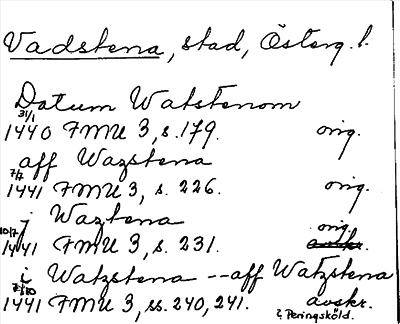 Vadstena, stad, Österg. l.
Datum Watstenom
31/1
1440 FMU 3, s. 179. orig.
aff Wazstena
7/7
1441 FMU 3, s. 226. orig.
j Waztena
10/7 orig.
1441 FMU 3, s. 231. avskr.
i Watzstena -- aff Watzstena
7/10
1441 FMU 3, ss. 240, 241. avskr.
i Peringsköld.